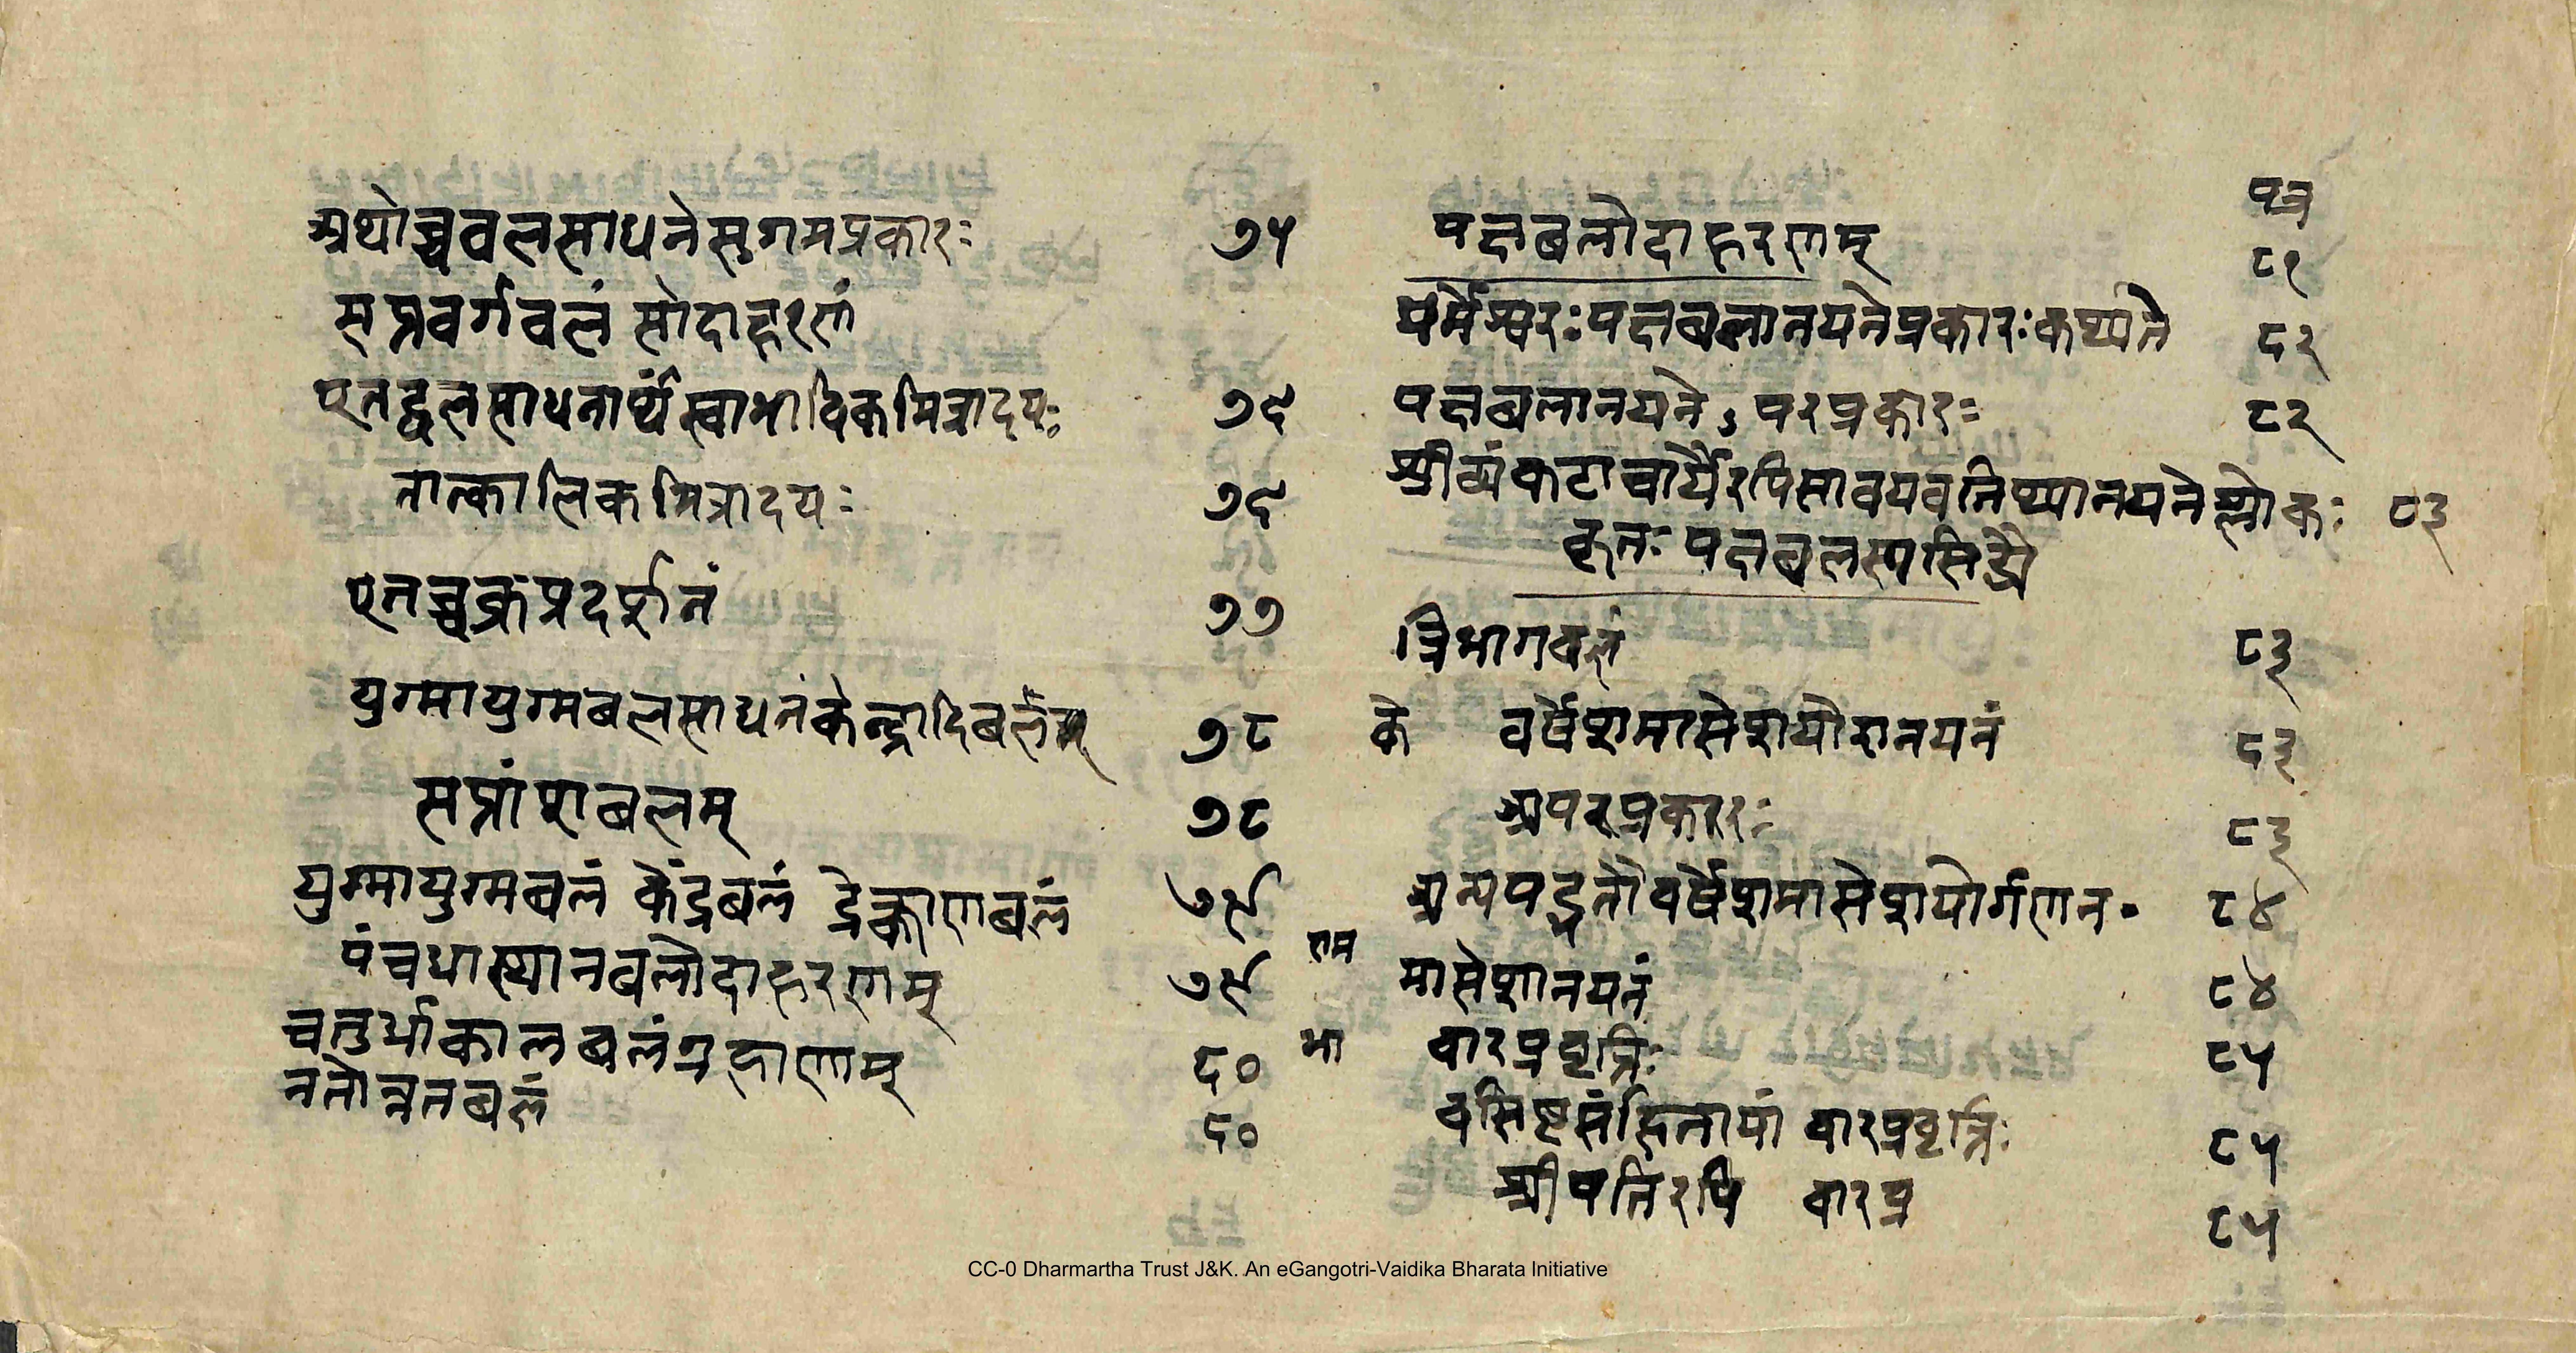 अथोच्चबलसाधनेसुगमप्रकारः ७५
सप्तवर्गबलं सोदाहरणं
एतद्बलसाधनार्थंस्वाभाविकमित्रादयः ७६
तात्कालिकमित्रादयः ७६
एतच्चक्रंप्रदर्शनं ७७
युग्मायुग्मबलसाधनंकेन्द्रादिबलम् ७८
सप्तांशबलम् ७८
युग्मायुग्मबलं केंद्रबलं द्रेक्काणबलं ७९
पंचधास्थानबलोदाहरणम् ७९
चतुर्धाकालबलंग्रहाणाम् ८०
नतोन्नतबलं ८०
पत्र
पक्षबलोदाहरणम् ८१
धर्मेश्वरःपक्षबलानयनेप्रकारःकथ्यते ८२
पक्षबलानयनेऽपरप्रकारः ८२
श्रीव्यंकटाचार्यैरपिसावयवतिथ्यानयनेश्लोकः ८३
कृतः पक्षबलस्यसिद्ध्यै
त्रिभागबलं ८३
के वर्षेशमासेशयोरानयनं ८३
अपरप्रकारः ८३
अन्यपद्धतौवर्षेशमासेशयोर्गणन॰ ८४
राम मासेशानयनं ८४
भा वारप्रवृत्तिः ८५
वसिष्टसंहितायां वारप्रवृत्तिः ८५
श्रीपतिरपि वारप्र ८५
CC-0 Dharmartha Trust J&K. An eGangotri-Vaidika Bharata Initiative